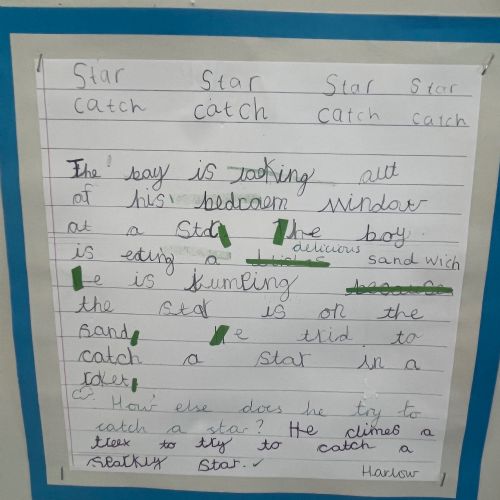 Star Star Star Star
catch catch catch catch
The boy is looking out
of his bedroom window
at a star The boy
delicious
is eting a sand wich
He is jumping because
the star is on the
sand, He trid to
catch a star in a
roket,
How else does he try to
catch a star? He climes a
treex to try to catch a
spearkly star.
Harlow